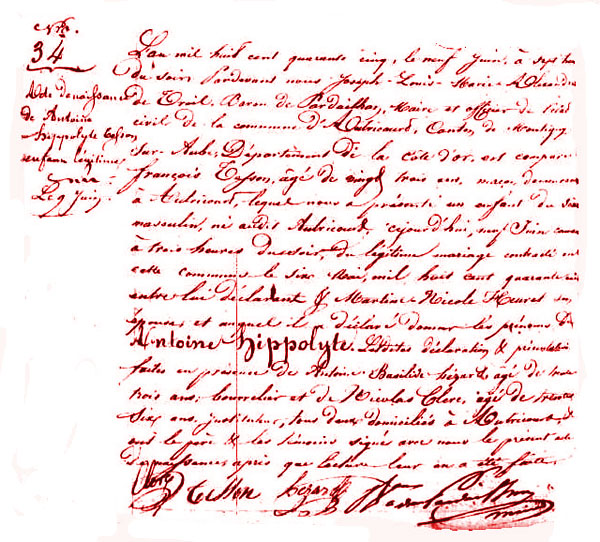 Nro.
34
Acte de naissance
de Antoine
hippolyte Tesson
enfant légitime
né
Le 9 Juin
L'an mil huit cent quarante cinq, le neuf Juin, à sept heu
du soir Pardevant nous Joseph-Louis-Marie-Alexandre
de Baron de Pardaillan, Maire et officier de l'état
civil de la commune d'Autricourt, Canton de Montigny
sur-Aube, Département de la Côte d'or, est comparu
françois Tesson, âgé de vingt trois ans, maçon, demeurant
à Autricourt, lequel nous a présenté un enfant du sexe
masculin, né audit Autricourt, cejourd'hui, neuf Juin courant
à trois heures du soir, du légitime mariage contracté en
cette commune le six Mai, mil huit cent quarante
entre lui déclarant & Martine-Nicole Heuret son
épouse, et auquel il a déclaré donner les prénoms de
Antoine hippolyte. Lesdites déclaration & présentation
faites en présence de Antoine Basilide hézard, âgé de trente
trois ans, bourrelier et de Nicolas Clerc, âgé de trente
six ans, instituteur, tous deux domiciliés à Autricourt, &
ont le père & les témoins signés avec nous le présent acte
de naissance après que lecture leur en a été faite.
Clerc Tesson hézard